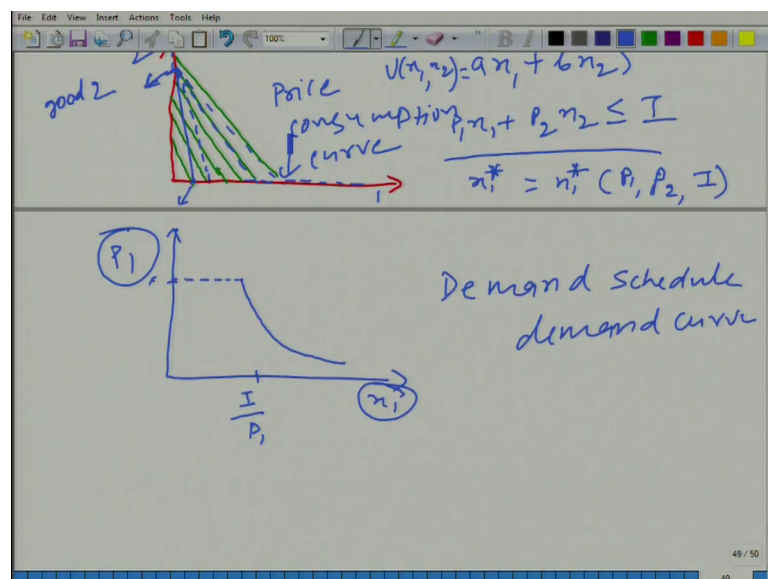 File Edit View Insert Actions Tools Help
100%
B I
good 2
Price
consumption
curve
U(x₁, x₂) = ax₁ + bx₂)
P₁x₁ + P₂x₂ ≤ I
x₁* = x₁* (P₁, P₂, I)
1
P₁
Demand schedule
demand curve
I
P₁
x₁*
49 / 50